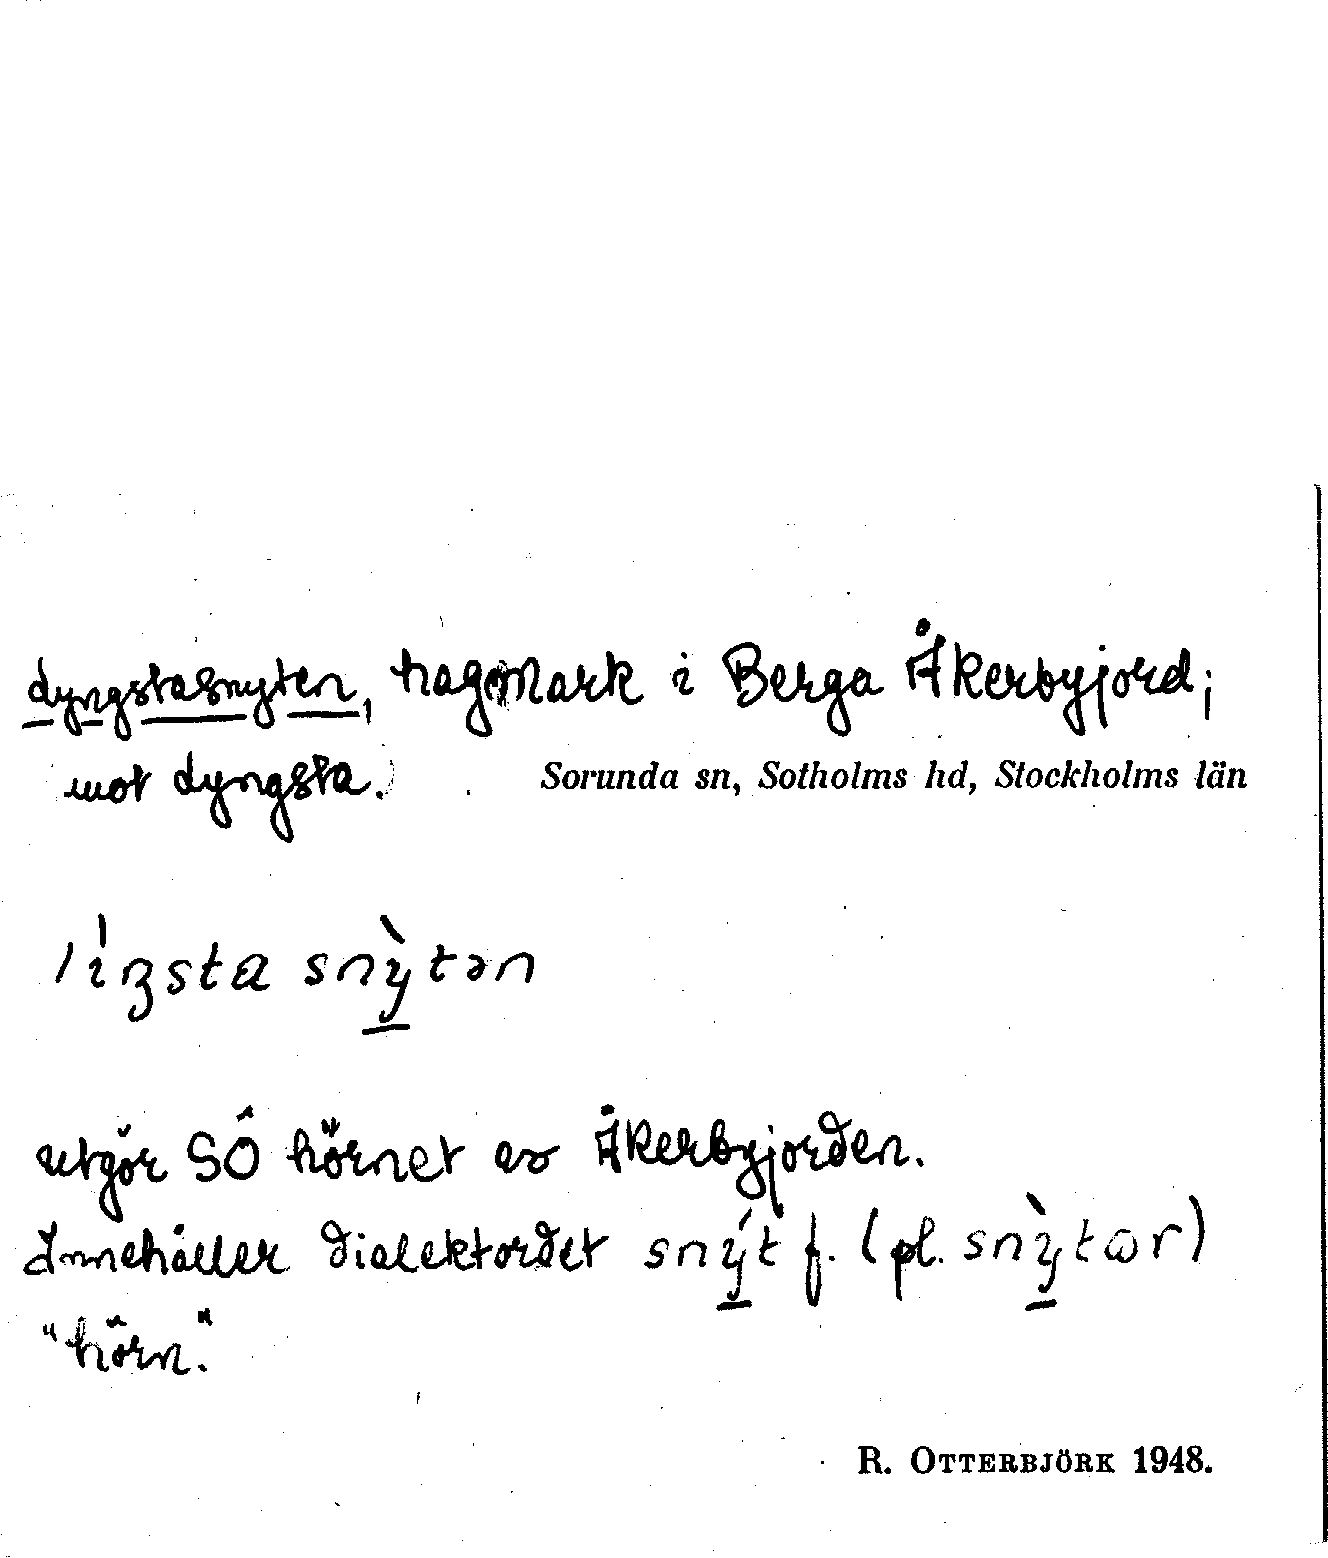 dyngstasnyten, hagmark i Berga Åkerbyjord;
mot dyngsta.
Sorunda sn, Sotholms hd, Stockholms län
líŋsta snỳtən
utgör SÖ hörnet av Åkerbyjorden.
Innehåller dialektordet snýt f. (pl. snỳtɷr)
"hörn."
R. OTTERBJÖRK 1948.